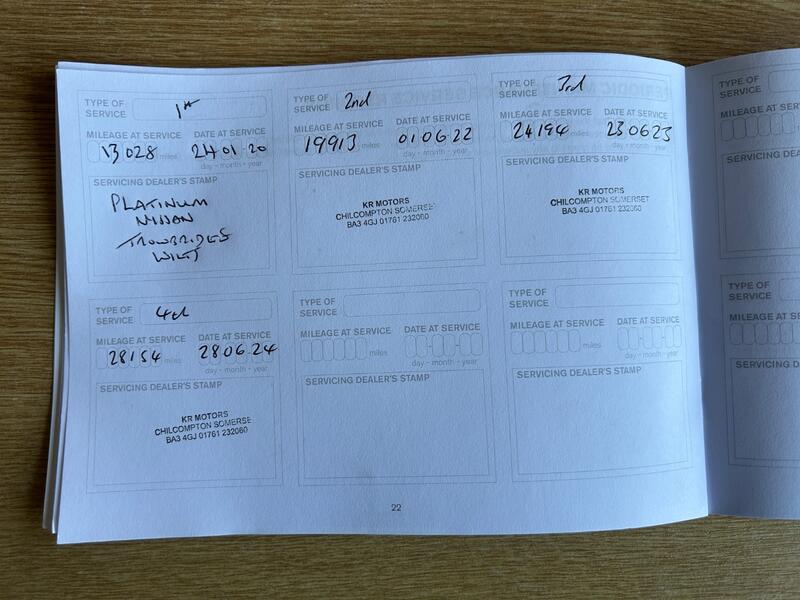 TYPE OF SERVICE 1st
MILEAGE AT SERVICE DATE AT SERVICE
13028 miles 24 01 20
day - month - year
SERVICING DEALER'S STAMP
PLATINUM
NISSAN
TROWBRIDGE
WILTS
TYPE OF SERVICE 2nd
MILEAGE AT SERVICE DATE AT SERVICE
19913 miles 01 06 22
day - month - year
SERVICING DEALER'S STAMP
KR MOTORS
CHILCOMPTON SOMERSET
BA3 4GJ 01761 232060
TYPE OF SERVICE 3rd
MILEAGE AT SERVICE DATE AT SERVICE
24194 miles 23 06 23
day - month - year
SERVICING DEALER'S STAMP
KR MOTORS
CHILCOMPTON SOMERSET
BA3 4GJ 01761 232060
TYPE OF SERVICE 4th
MILEAGE AT SERVICE DATE AT SERVICE
28154 miles 28 06 24
day - month - year
SERVICING DEALER'S STAMP
KR MOTORS
CHILCOMPTON SOMERSE
BA3 4GJ 01761 232060
TYPE OF SERVICE
MILEAGE AT SERVICE DATE AT SERVICE
miles
day - month - year
SERVICING DEALER'S STAMP
TYPE OF SERVICE
MILEAGE AT SERVICE DATE AT SERVICE
miles
day - month - year
SERVICING DEALER'S STAMP
22
TYPE OF
SERVICE
MILEAGE A
SERVICING D
TYPE OF
SERVICE
MILEAGE A
SERVICING D